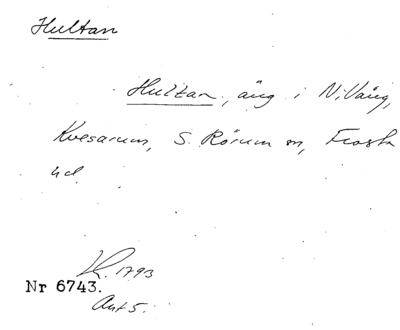 Hultan
Hultan, äng i N. Vång,
Kvesarum, S. Rörum sn, Frosta
hd
K. 1793
Nr 6743.
Akt 5.